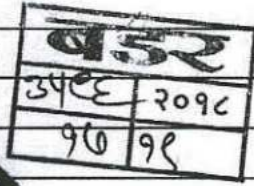 बडर
३५९६ २०१८
१७ १९